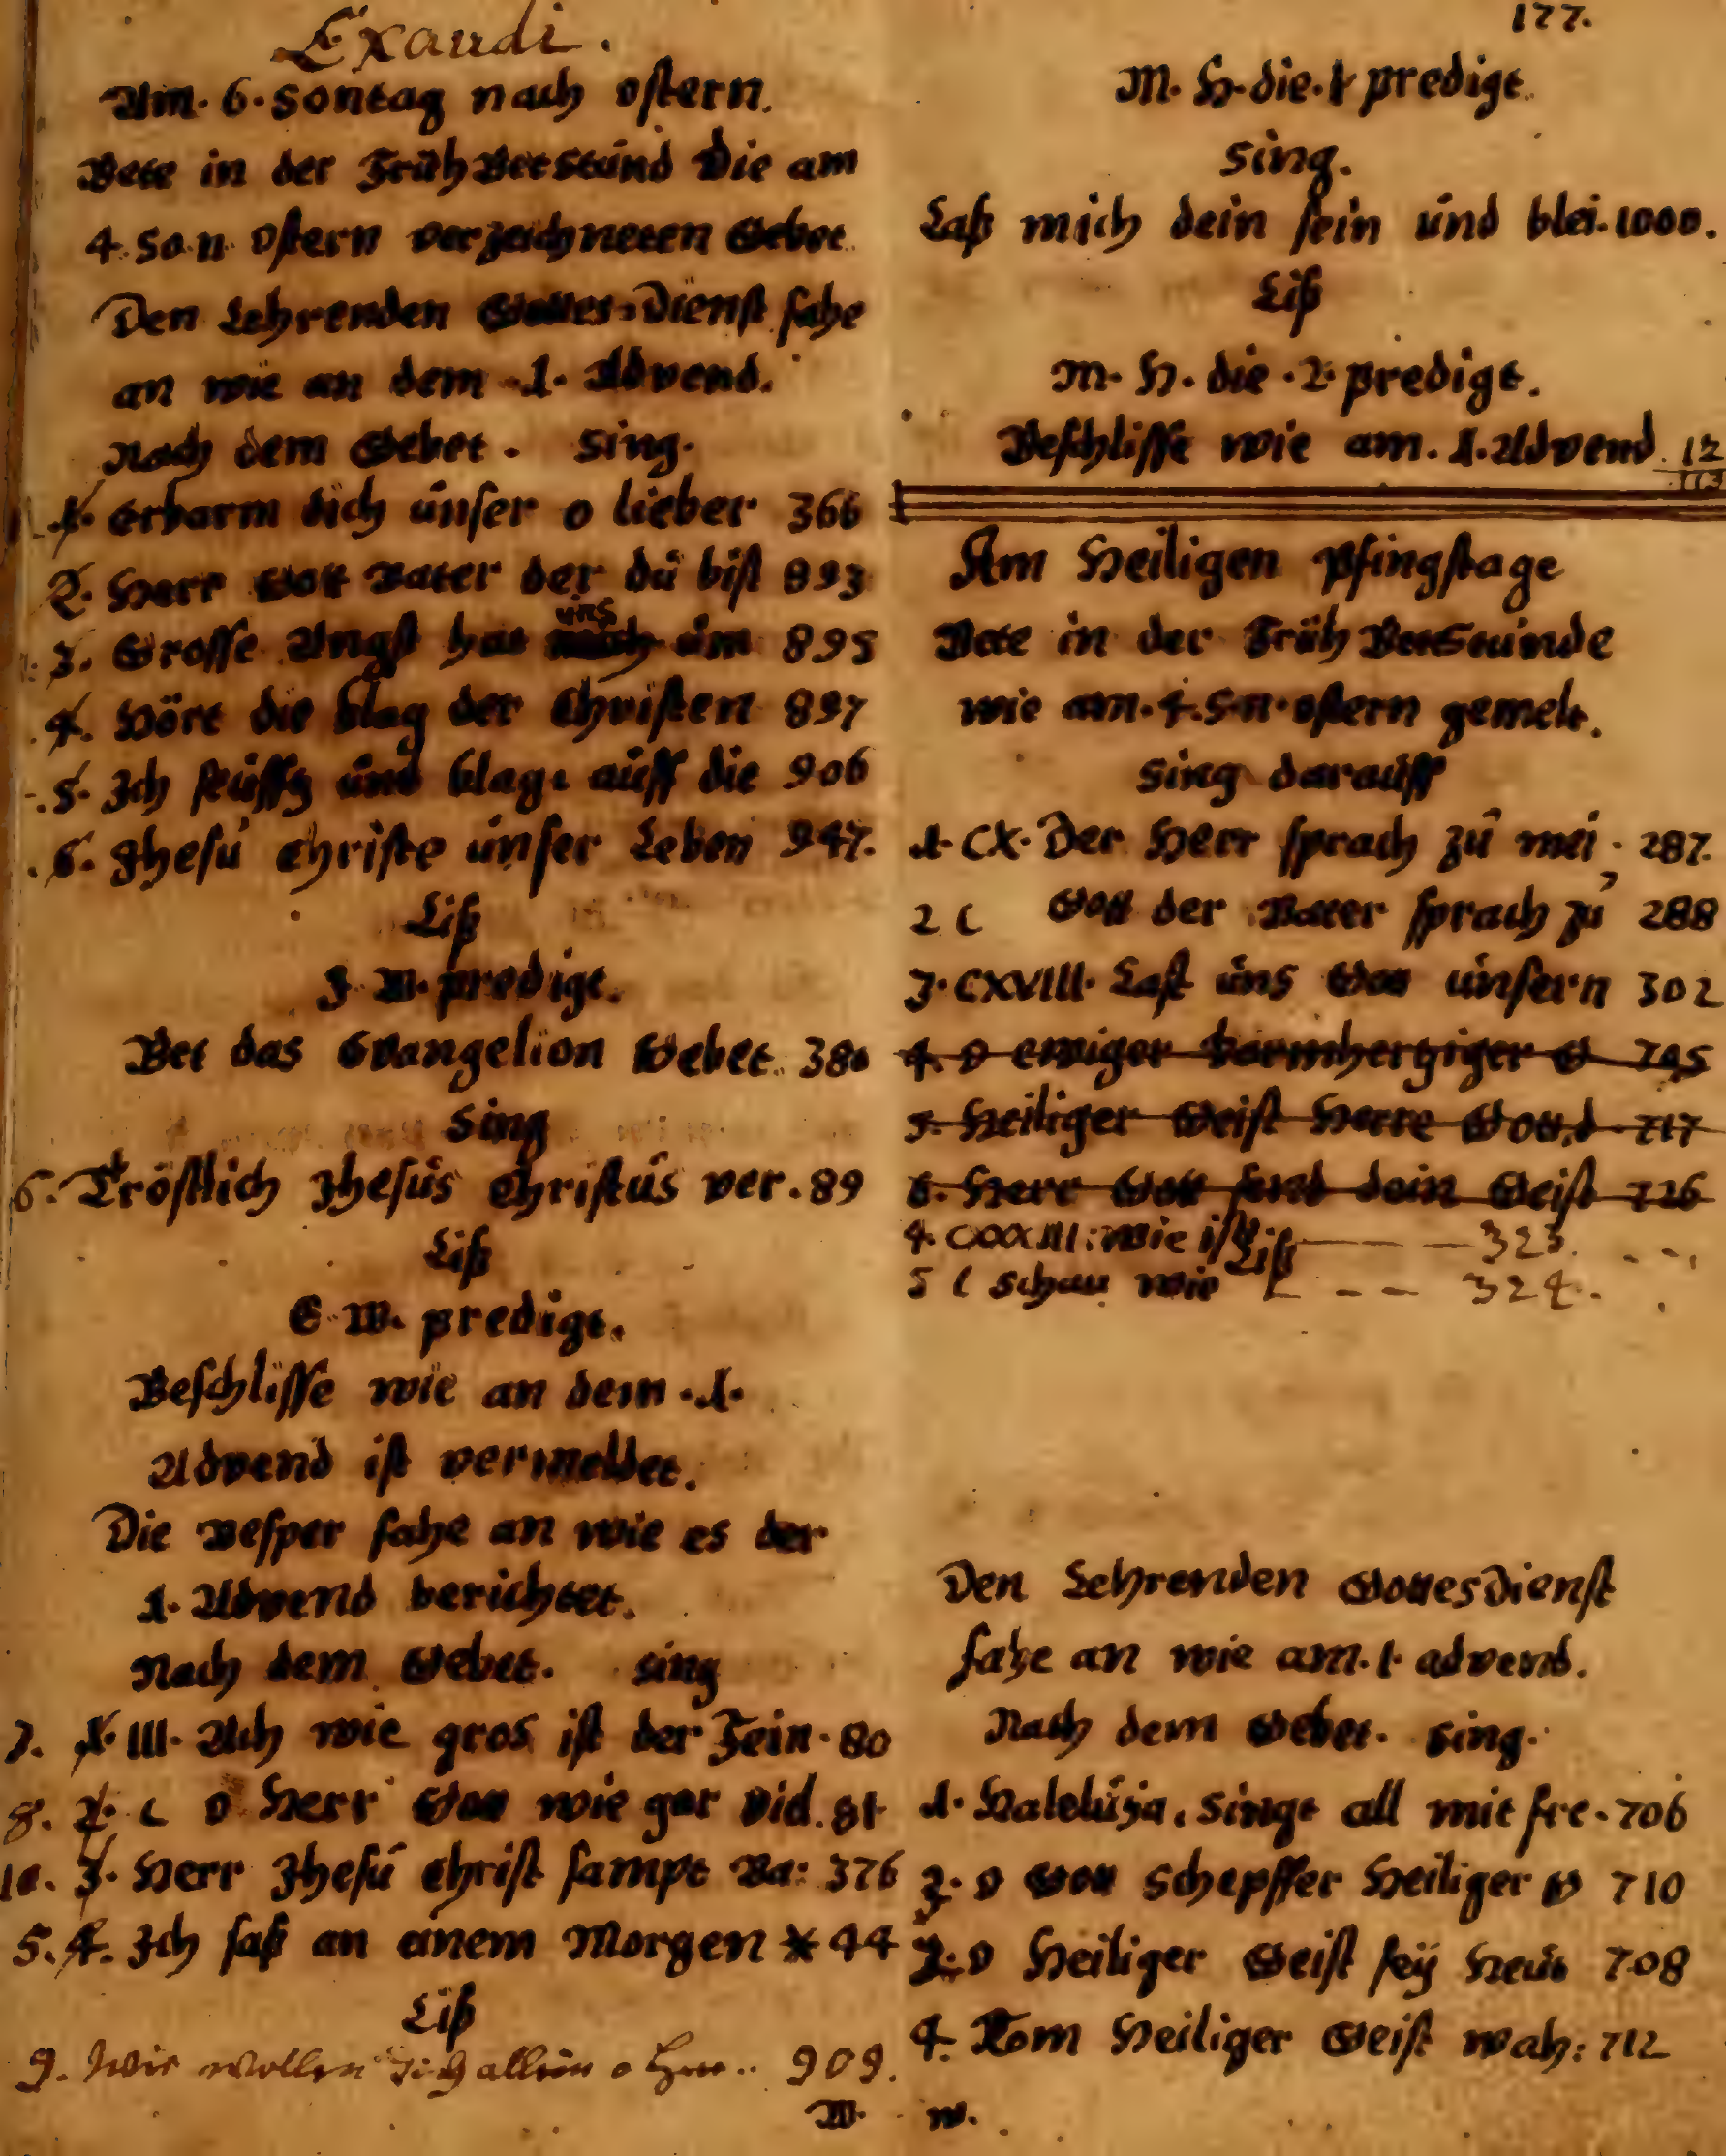 Exaudi.
Am. 6. Sontag nach ostern.
Bete in der Früh Betstúnd Die am
4. So. n. ostern verzeichneten Gebet.
Den Lehrenden Gottes-Dienst fahe
an wie an dem .1. Advend.
Nach dem Gebet. Sing.
1. Erbarm dich únser o lieber 366
2. Herr Gott Vater der dú bist 893
3. Grosse Angst hat úns úm 895
4. Hört die klag der Christen 897
5. Ich seúffz únd klage aúff die 906
6. Jhesú Christe únser Leben 947.
Liß
J. W. predigt.
Bet das Evangelion Gebet. 380
Sing
6. Tröstlich Jhesús Christús ver. 89
Liß
E. W. predigt.
Beschlisse wie an dem .1.
Advend ist vermeldet.
Die Vesper fahe an wie es der
1. Advend berichtet.
Nach dem Gebet. Sing
7. 1. III. Ach wie gros ist der Fein. 80
8. 2. C O Herr Gott wie gar vid. 81
10. 3. Herr Jhesú Christ sampt Va: 376
5. 4. Ich saß an einem Morgen * 44
Liß
9. Wir wollen dich allein o Herr.. 909.
W.
177.
M. H. die. 1 predigt.
Sing.
Laß mich dein sein únd blei. 1000.
Liß
M. H. die .2. predigt.
Beschlisse wie am. 1. Advend. 12
113
Am Heiligen Pfingstage
Bete in der Früh Betstúnde
wie am. 4. S. n. ostern gemelt.
Sing daraúff
1. CX. Der Herr sprach zú mei. 287.
2 C Gott der Vater sprach zú 288
3. CXVIII. Last úns Gott únsern 302
4. O ewiger barmhertziger G 705
5. Heiliger Geist Herre Gott, d. 717
6. Herr Gott send dein Geist 726
4. CXXXIII: Wie ist — — — 323.
Liß
5 C Schau wie — — 324.
Den Lehrenden Gottesdienst
fahe an wie am. 1. advend.
Nach dem Gebet. Sing.
1. Halelúja. Singt all mit fre. 706
3. O Gott Schepffer Heiliger G 710
2. O Heiliger Geist seÿ Heút 708
4. Kom Heiliger Geist wah: 712
W.